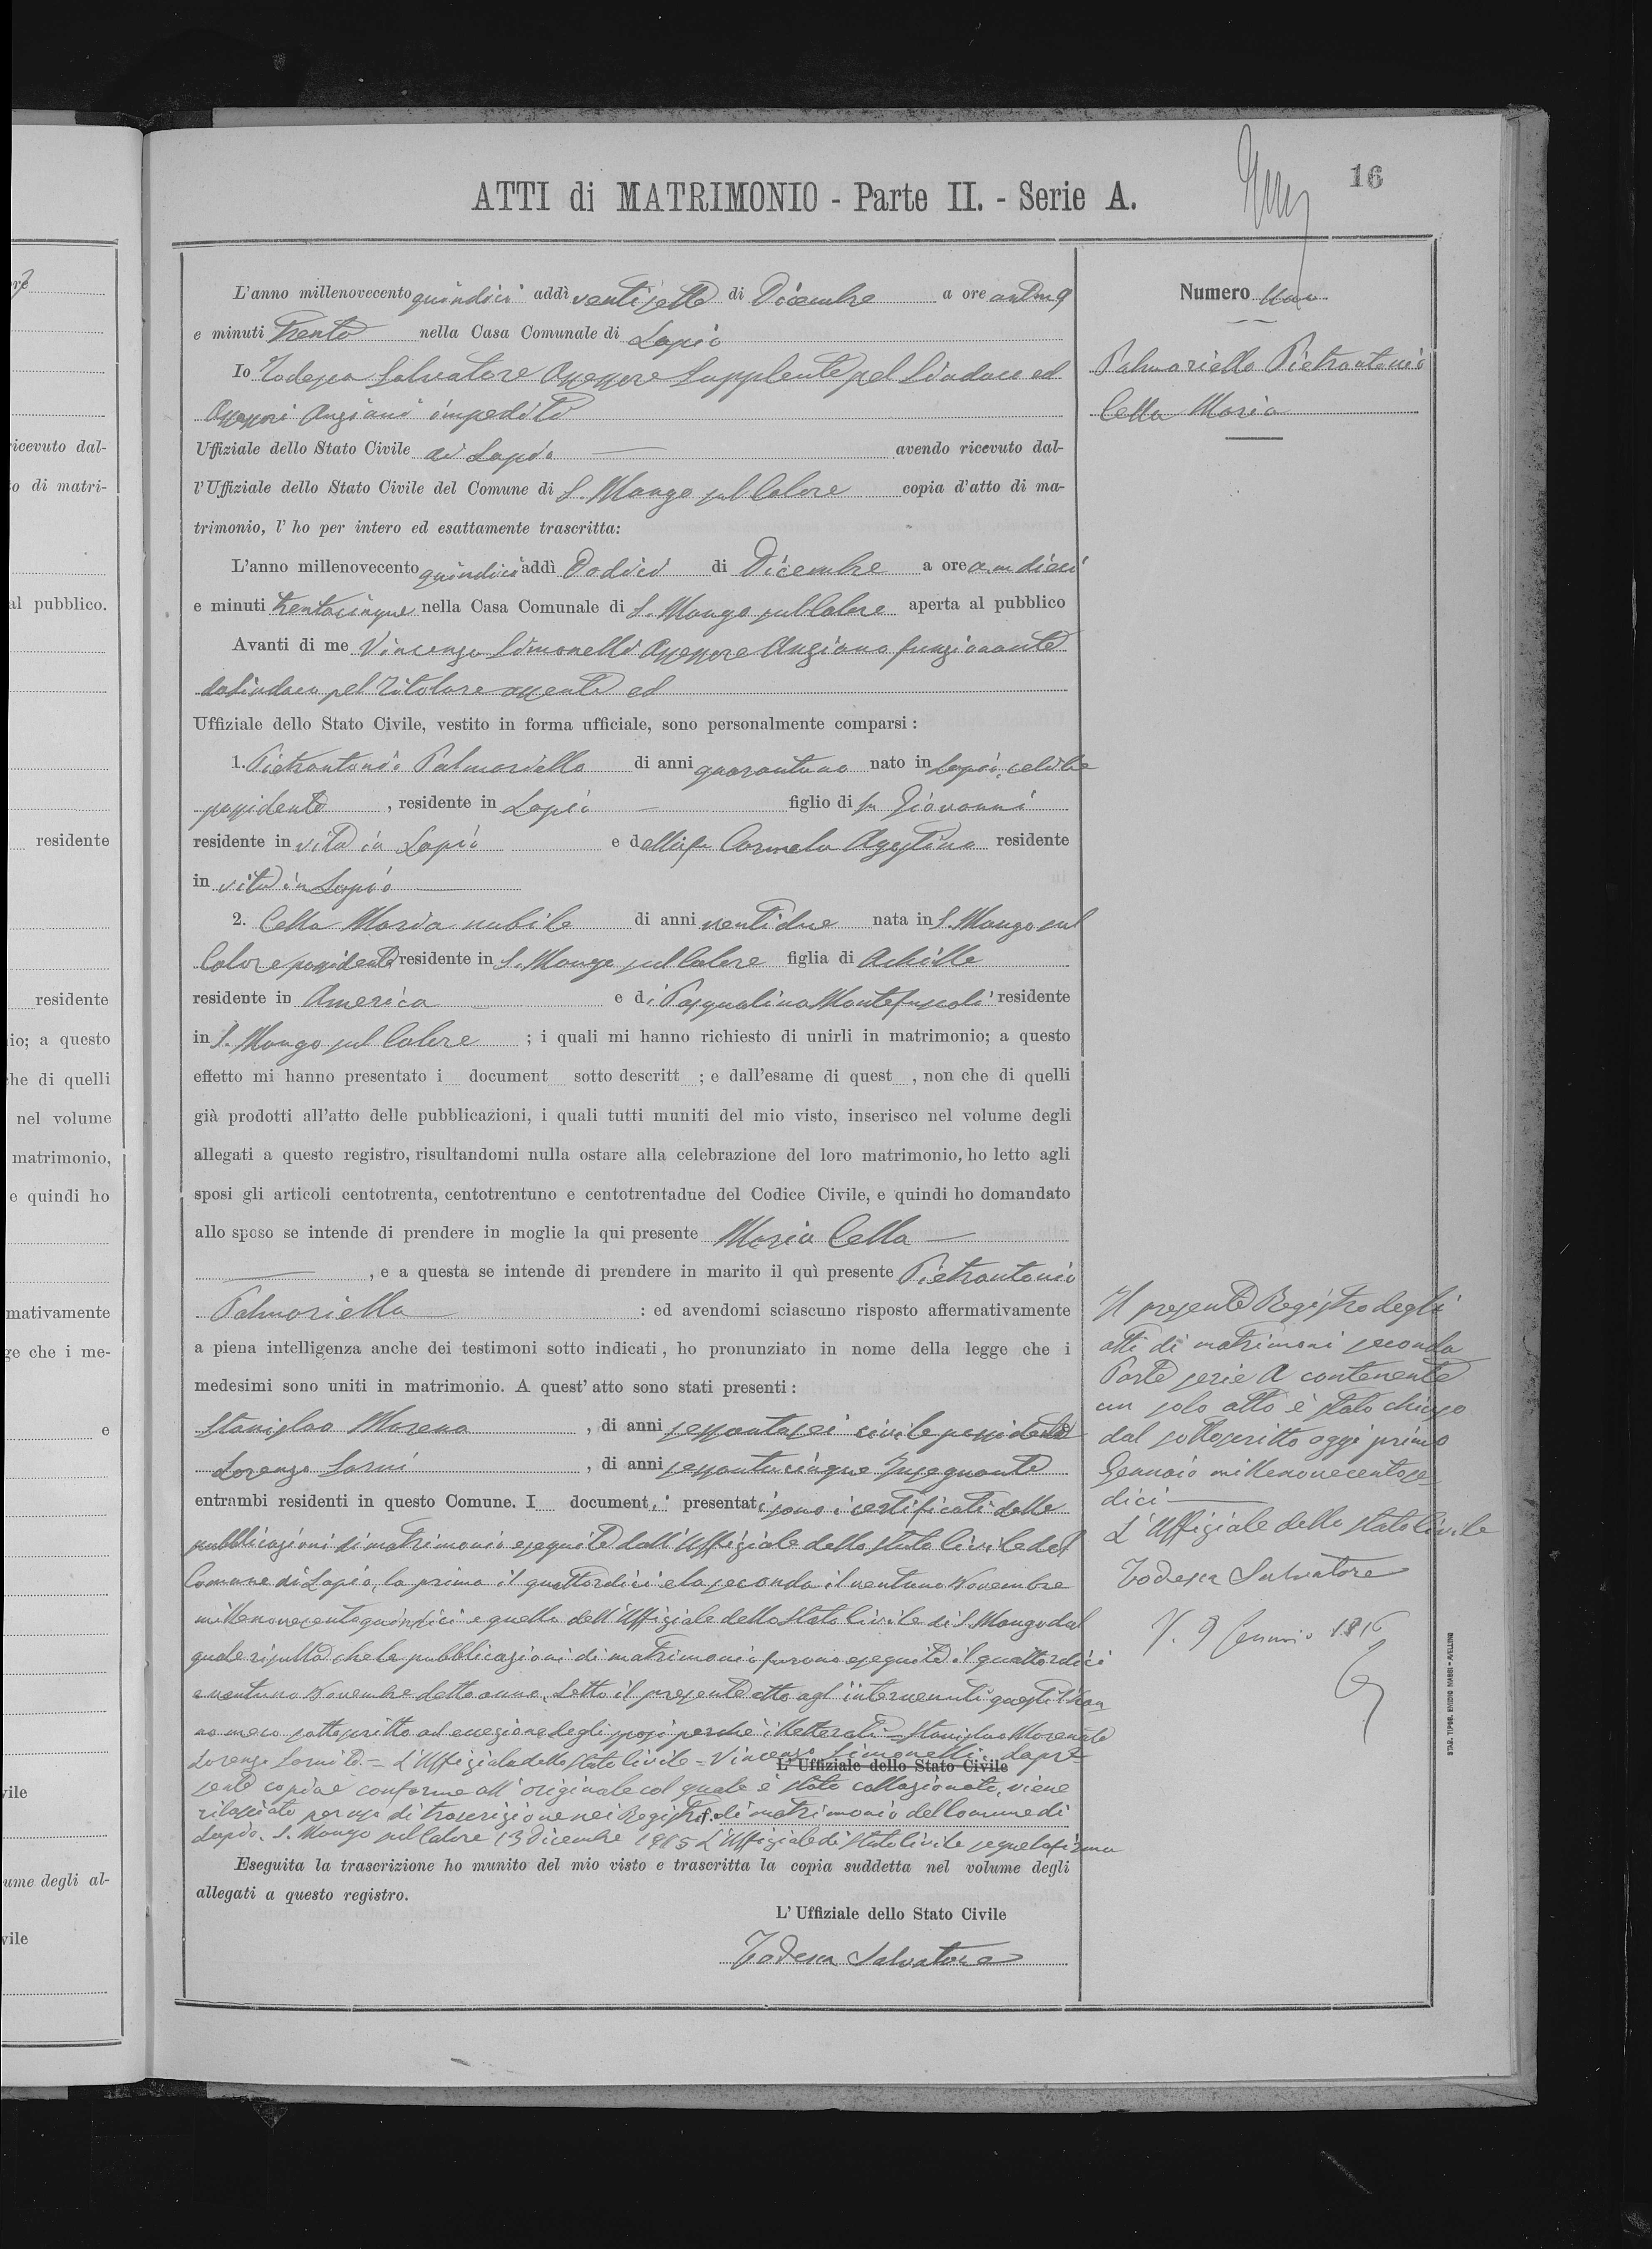 16
ATTI di MATRIMONIO - Parte II. - Serie A.
L'anno millenovecento quindici addì ventisette di Dicembre a ore antm 9
e minuti Trenta nella Casa Comunale di Lapio
Io Todesca Salvatore Assessore Supplente pel Sindaco ed
Assessori Anziani impediti
Uffiziale dello Stato Civile di Lapio avendo ricevuto dal-
l'Uffiziale dello Stato Civile del Comune di S. Mango sul Calore copia d'atto di ma-
trimonio, l'ho per intero ed esattamente trascritta:
L'anno millenovecento quindici addì Dodici di Dicembre a ore a.m dieci
e minuti trentacinque nella Casa Comunale di S. Mango sul Calore aperta al pubblico
Avanti di me Vincenzo Simonelli Assessore Anziano funzionante
da Sindaco pel Titolare assente ed
Uffiziale dello Stato Civile, vestito in forma ufficiale, sono personalmente comparsi:
1. Pietrantonio Palmariello di anni quarantuno nato in Lapio, celibe
possidente, residente in Lapio figlio di fu Giovanni
residente in vita in Lapio e della fu Carmela Agostino residente
in vita in Lapio
2. Cella Maria nubile di anni ventidue nata in S. Mango sul
Calore possidente residente in S. Mango sul Calore figlia di Achille
residente in America e di Pasqualina Montefuscoli residente
in S. Mango sul Calore ; i quali mi hanno richiesto di unirli in matrimonio; a questo
effetto mi hanno presentato i document sotto descritt ; e dall'esame di quest , non che di quelli
già prodotti all'atto delle pubblicazioni, i quali tutti muniti del mio visto, inserisco nel volume degli
allegati a questo registro, risultandomi nulla ostare alla celebrazione del loro matrimonio, ho letto agli
sposi gli articoli centotrenta, centotrentuno e centotrentadue del Codice Civile, e quindi ho domandato
allo sposo se intende di prendere in moglie la qui presente Maria Cella
, e a questa se intende di prendere in marito il quì presente Pietrantonio
Palmariello : ed avendomi sciascuno risposto affermativamente
a piena intelligenza anche dei testimoni sotto indicati, ho pronunziato in nome della legge che i
medesimi sono uniti in matrimonio. A quest' atto sono stati presenti:
Stanislao Morena, di anni sessantasei civile possidente
Lorenzo Sarni, di anni sessantacinque Insegnante
entrambi residenti in questo Comune. I document i presentati sono i certificati delle
pubblicazioni di matrimonio eseguite dall'Uffiziale dello stato civile del
Comune di Lapio, la prima il quattordici e la seconda il ventuno Novembre
millenovecentoquindici e quello dell'Uffiziale dello Stato Civile di S. Mango dal
quale risulta che le pubblicazioni di matrimonio furono eseguite il quattordici
e ventuno Novembre detto anno. Letto il presente atto agl'intervenuti questi l'han
no meco sottoscritto ad eccezione degli sposi perché illetterati = Stanislao Morena te
Lorenzo Sarni te = L'Uffiziale dello Stato Civile = Vincenzo Simonelli. La pre
L' Uffiziale dello Stato Civile
sente copia è conforme all'originale col quale è stato collazionata, viene
rilasciata per uso di trascrizione nei Registri di matrimonio del Comune di
Lapio. S. Mango sul Calore 13 Dicembre 1915 L'Uffiziale di Stato Civile segue la firma
Eseguita la trascrizione ho munito del mio visto e trascritta la copia suddetta nel volume degli
allegati a questo registro.
L' Uffiziale dello Stato Civile
Todesca Salvatore
Numero Uno
Palmariello Pietrantonio
Cella Maria
Il presente Registro degli
atti di matrimoni seconda
Parte serie A contenente
un solo atto è stato chiuso
dal sottoscritto oggi primo
Gennaio millenovecentose
dici
L'Uffiziale dello Stato Civile
Todesca Salvatore
V. 9 Gennaio 1916
STAB. TIPOGR. EMIDIO MAGGI - AVELLINO
ricevuto dal-
o di matri-
al pubblico.
residente
residente
io; a questo
che di quelli
nel volume
matrimonio,
e quindi ho
mativamente
ge che i me-
e
vile
ume degli al-
vile